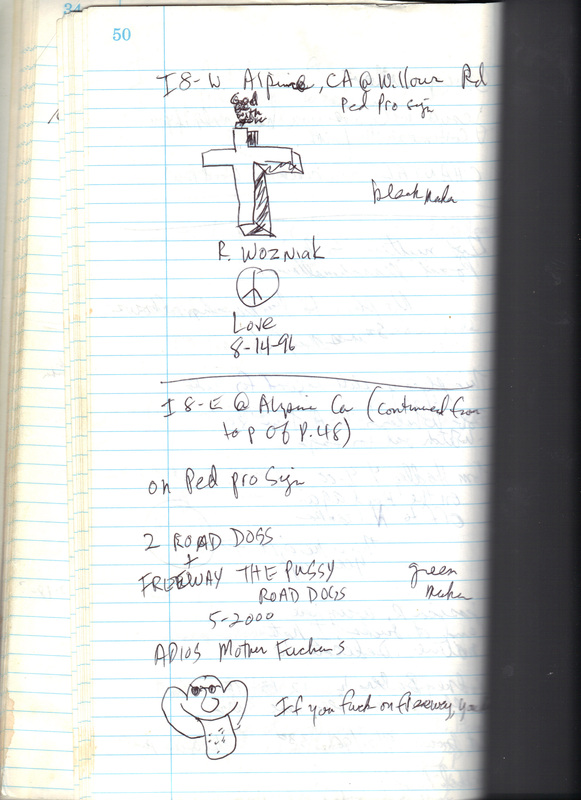 34
50
I 8-W Alpine, CA @ Willows Rd
Ped Pro sign
God
Be
with
you
black
R. WOZNIAK
Love
8-14-96
I 8-E @ Alpine Ca (continued from
top of P. 48)
on Ped pro Sign
2 ROAD DOGS
+
FREEWAY THE PUSSY
ROAD DOGS
green
5-2000
ADIOS Mother Fuckers
If you fuck on freeway, you